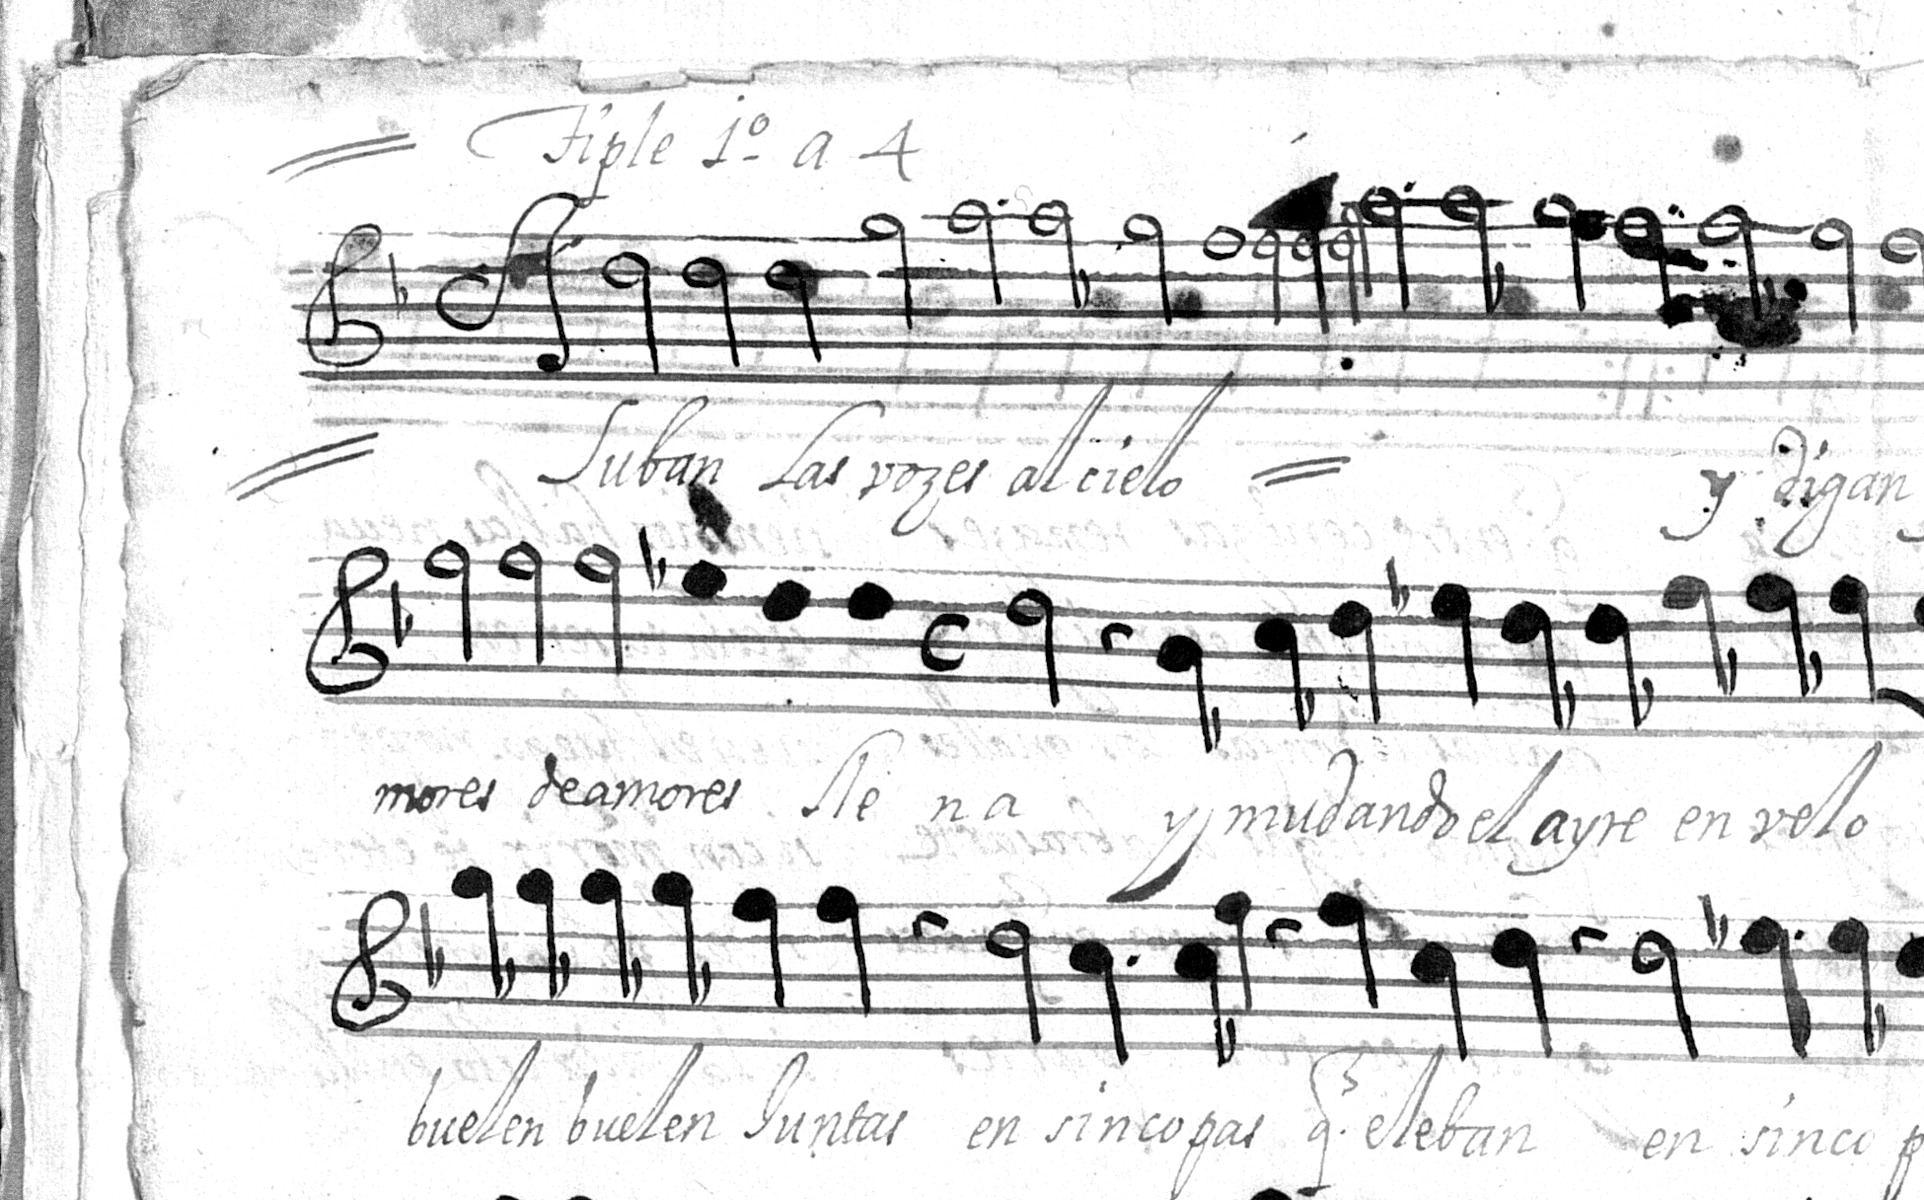 Tiple 1º a 4
Suban Las vozes al cielo y digan
mores de amores lle na y mudando el ayre en velo
buelen buelen Juntas en sincopas q.e eleban en sinco p